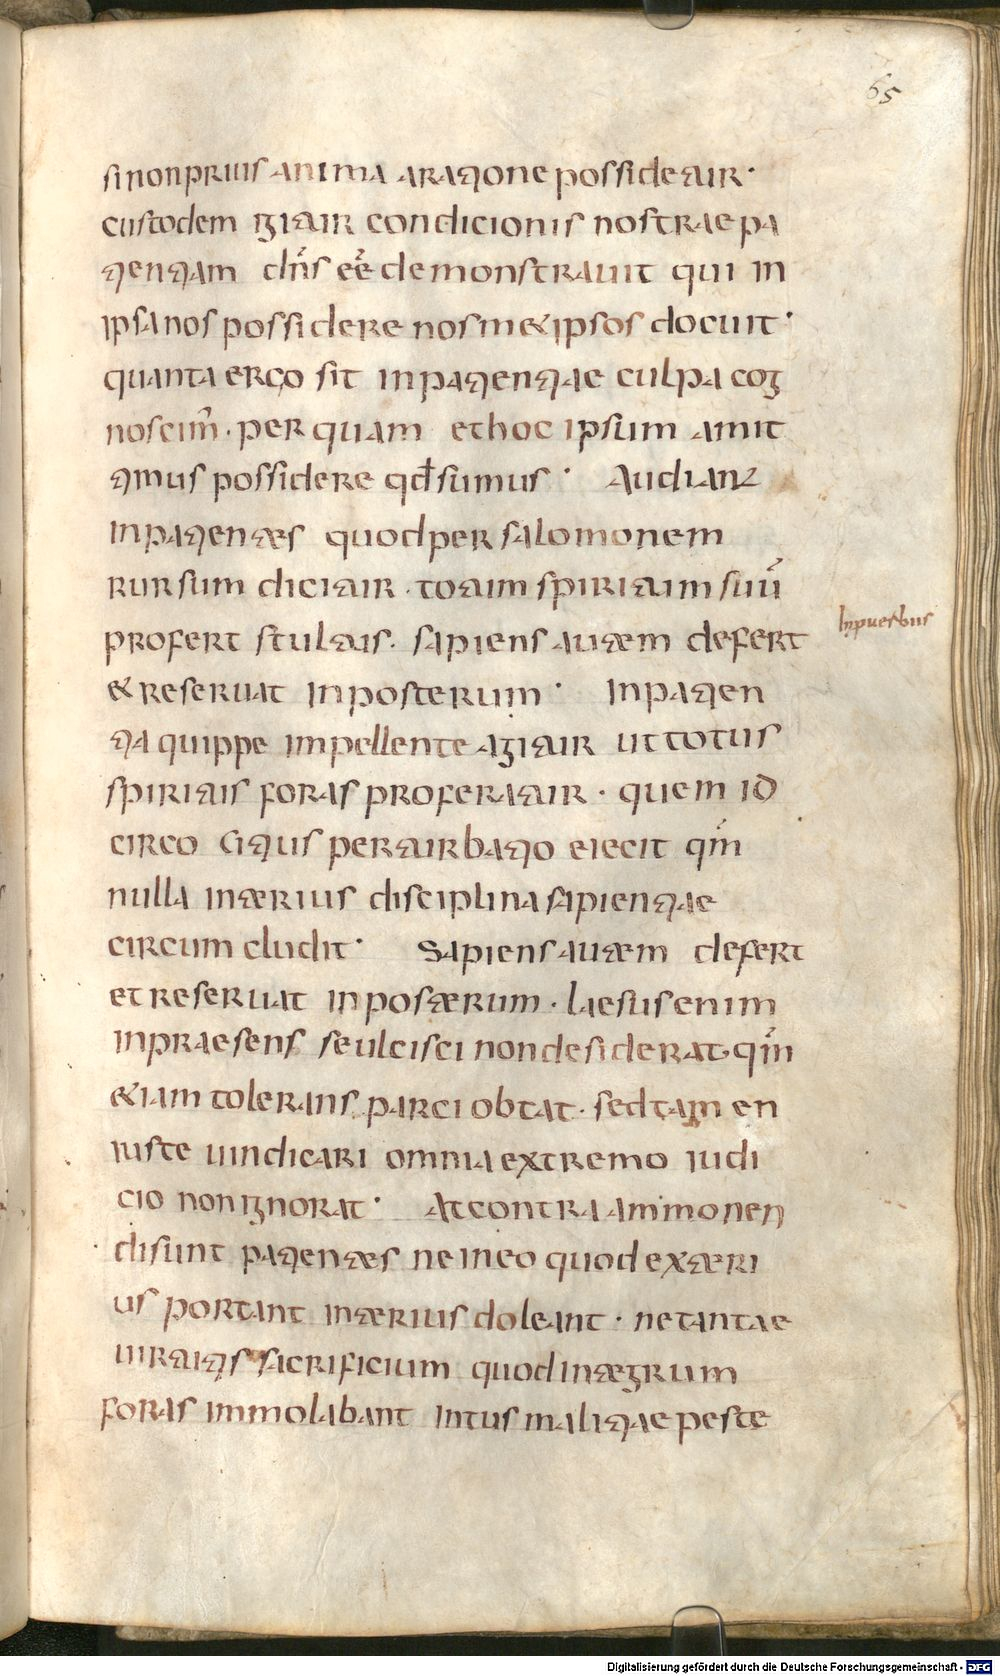 65
si non prius anima a ratione possideatur·
custodem igitur condicionis nostrae pa
tientiam dn̄s eē demonstrauit qui in
ipsa nos possidere nosmetipsos docuit·
quanta ergo sit inpatientiae culpa cog
noscim̄· per quam et hoc ipsum amit
timus possidere qđ sumus· Audiant
inpatientes quod per salomonem
rursum dicitur· totum spiritum suū
profert stultus· sapiens autem defert
In prouerbiis
& reseruat in posterum· Inpatien
tia quippe impellente agitur ut totus
spiritus foras proferatur· quem id
circo citius perturbatio eiecit qm̄
nulla interius disciplina sapientiae
circumcludit· Sapiens autem defert
et reseruat in posterum· laesus enim
in praesens se ulcisci non desiderat· qm̄
etiam tolerans parci obtat· sed tamen
iuste uindicari omnia extremo iudi
cio non ignorat· At contra ammonen
di sunt patientes ne in eo quod exteri
us portant interius doleant· ne tantae
uirtutis sacrificium quod integrum
foras immolabant intus malitiae peste
Digitalisierung gefördert durch die Deutsche Forschungsgemeinschaft - DFG